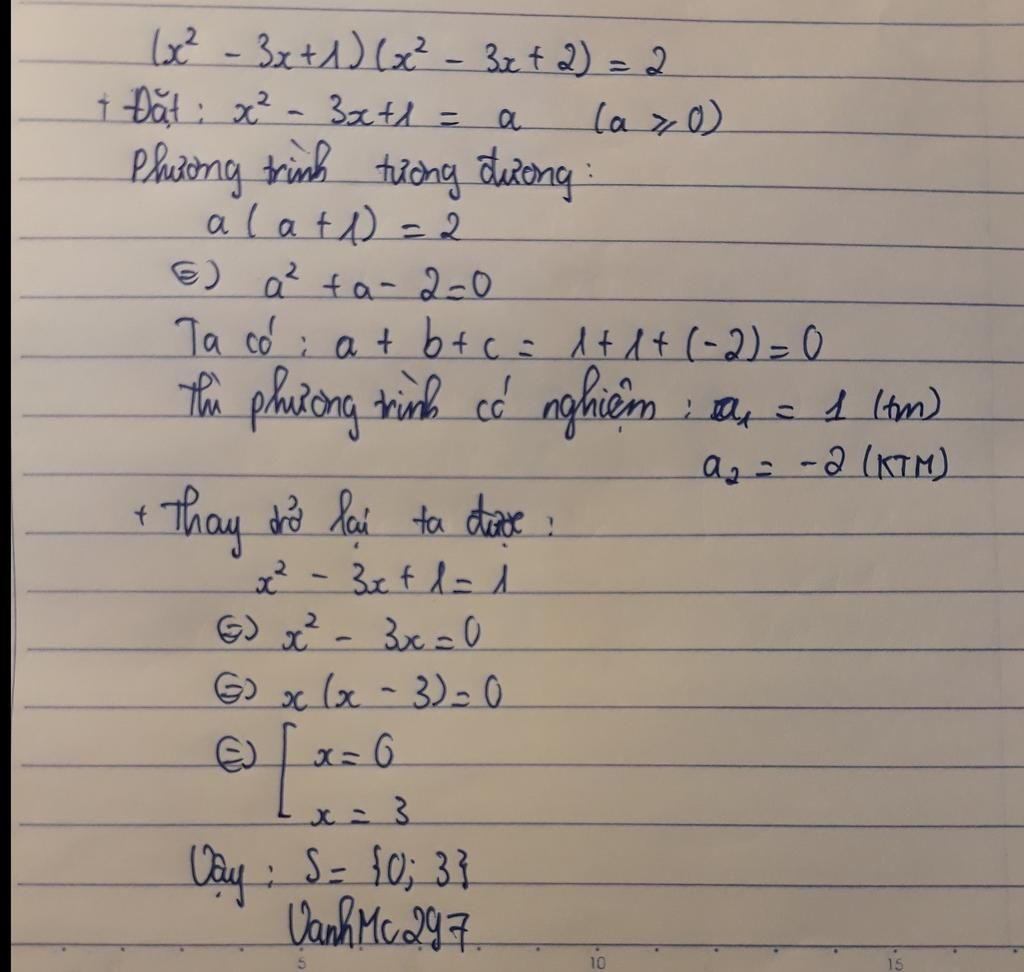 (x² - 3x+1)(x² - 3x+2) = 2
+ Đặt: x² - 3x+1 = a (a ⩾ 0)
Phương trình tương đương:
a(a+1) = 2
⇔ a² + a - 2=0
Ta có: a + b + c = 1+1+(-2)=0
Thì phương trình có nghiệm: a₁ = 1 (tm)
a₂ = -2 (KTM)
+ Thay trở lại ta được:
x² - 3x + 1 = 1
⇔ x² - 3x = 0
⇔ x(x - 3)=0
⇔ [ x = 0
x = 3
Vậy: S = {0; 3}
VanhMc297
5 10 15